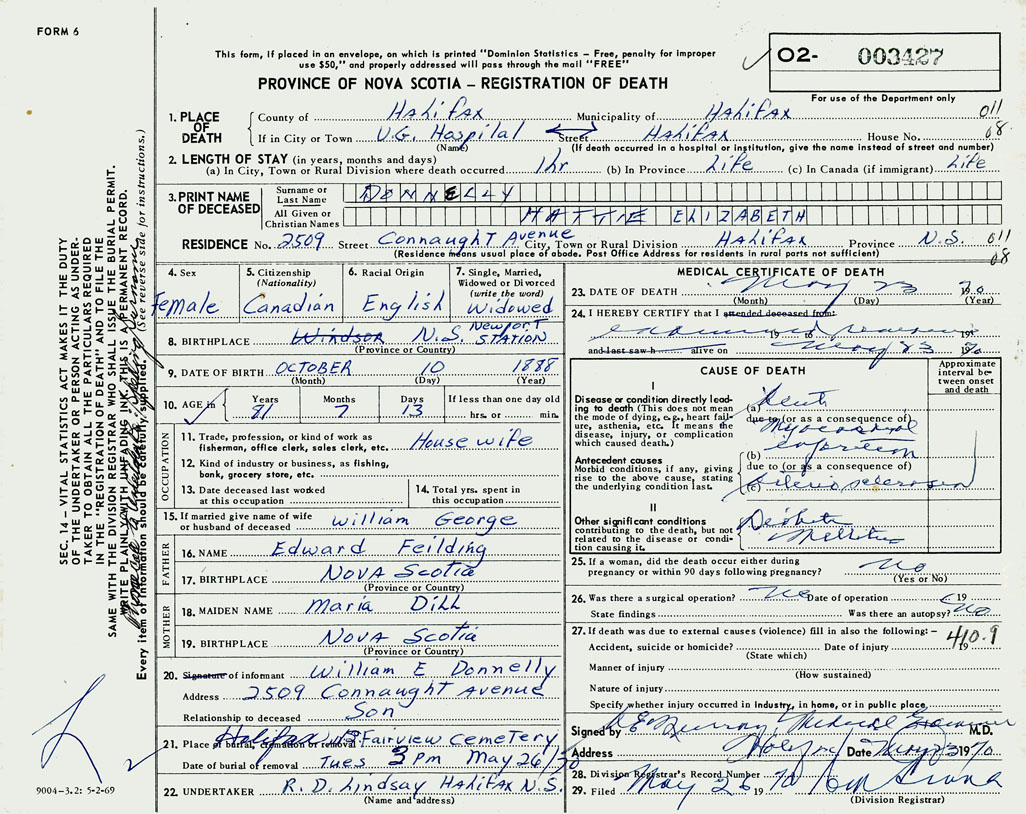 FORM 6
This form, if placed in an envelope, on which is printed "Dominion Statistics – Free, penalty for improper
use $50," and properly addressed will pass through the mail "FREE"
PROVINCE OF NOVA SCOTIA – REGISTRATION OF DEATH
02- 003427
For use of the Department only
SEC. 14 – VITAL STATISTICS ACT MAKES IT THE DUTY
OF THE UNDERTAKER OR PERSON ACTING AS UNDER-
TAKER TO OBTAIN ALL THE PARTICULARS REQUIRED
IN THE "REGISTRATION OF DEATH" AND TO FILE THE
SAME WITH THE DIVISION REGISTRAR WHO SHALL ISSUE THE BURIAL PERMIT.
WRITE PLAINLY WITH UNFADING INK. THIS IS A PERMANENT RECORD.
Every item of information should be carefully supplied. (See reverse side for instructions.)
1. PLACE OF DEATH
County of Halifax Municipality of Halifax 011
If in City or Town V.G. Hospital Street Halifax House No. 08
(Name) (If death occurred in a hospital or institution, give the name instead of street and number)
2. LENGTH OF STAY (in years, months and days)
(a) In City, Town or Rural Division where death occurred 1 hr (b) In Province Life (c) In Canada (if immigrant) Life
3. PRINT NAME OF DECEASED
Surname or Last Name DONNELLY
All Given or Christian Names HATTIE ELIZABETH
RESIDENCE No. 2509 Street Connaught Avenue City, Town or Rural Division Halifax Province N.S. 011
(Residence means usual place of abode. Post Office Address for residents in rural parts not sufficient) 08
4. Sex Female
5. Citizenship (Nationality) Canadian
6. Racial Origin English
7. Single, Married, Widowed or Divorced (write the word) Widowed
8. BIRTHPLACE Windsor N.S. Newport STATION
(Province or Country)
9. DATE OF BIRTH OCTOBER 10 1888
(Month) (Day) (Year)
10. AGE in Years 81 Months 7 Days 13 If less than one day old hrs. or min.
OCCUPATION
11. Trade, profession, or kind of work as fisherman, office clerk, sales clerk, etc. House wife
12. Kind of industry or business, as fishing, bank, grocery store, etc.
13. Date deceased last worked at this occupation
14. Total yrs. spent in this occupation
15. If married give name of wife or husband of deceased William George
FATHER
16. NAME Edward Feilding
17. BIRTHPLACE Nova Scotia
(Province or Country)
MOTHER
18. MAIDEN NAME Maria Dill
19. BIRTHPLACE Nova Scotia
(Province or Country)
20. Signature of informant William E Donnelly
Address 2509 Connaught Avenue
Relationship to deceased Son
21. Place of burial, cremation or removal Halifax Fairview Cemetery
Date of burial of removal Tues 3 Pm May 26/70
22. UNDERTAKER R. D. Lindsay Halifax N.S.
(Name and address)
9004-3.2: 5-2-69
MEDICAL CERTIFICATE OF DEATH
23. DATE OF DEATH May 23 70
(Month) (Day) (Year)
24. I HEREBY CERTIFY that I attended deceased from
19 19
and last saw h alive on May 23 1970
CAUSE OF DEATH
Approximate interval between onset and death
I
Disease or condition directly leading to death (This does not mean the mode of dying, e.g., heart failure, asthenia, etc. It means the disease, injury, or complication which caused death.)
(a) Acute
due to (or as a consequence of)
Myocardial
(b) infarction
Antecedent causes
Morbid conditions, if any, giving rise to the above cause, stating the underlying condition last.
due to (or as a consequence of)
(c)
II
Other significant conditions contributing to the death, but not related to the disease or condition causing it.
Diabetes
Mellitus
25. If a woman, did the death occur either during pregnancy or within 90 days following pregnancy? No
(Yes or No)
26. Was there a surgical operation? No Date of operation 19
State findings Was there an autopsy? No
27. If death was due to external causes (violence) fill in also the following:– 410.9
Accident, suicide or homicide? Date of injury 19
(State which)
Manner of injury
(How sustained)
Nature of injury
Specify whether injury occurred in industry, in home, or in public place
Signed by Medical Examiner M.D.
Address Halifax Date May 23 1970
28. Division Registrar's Record Number
29. Filed May 26 1970
(Division Registrar)